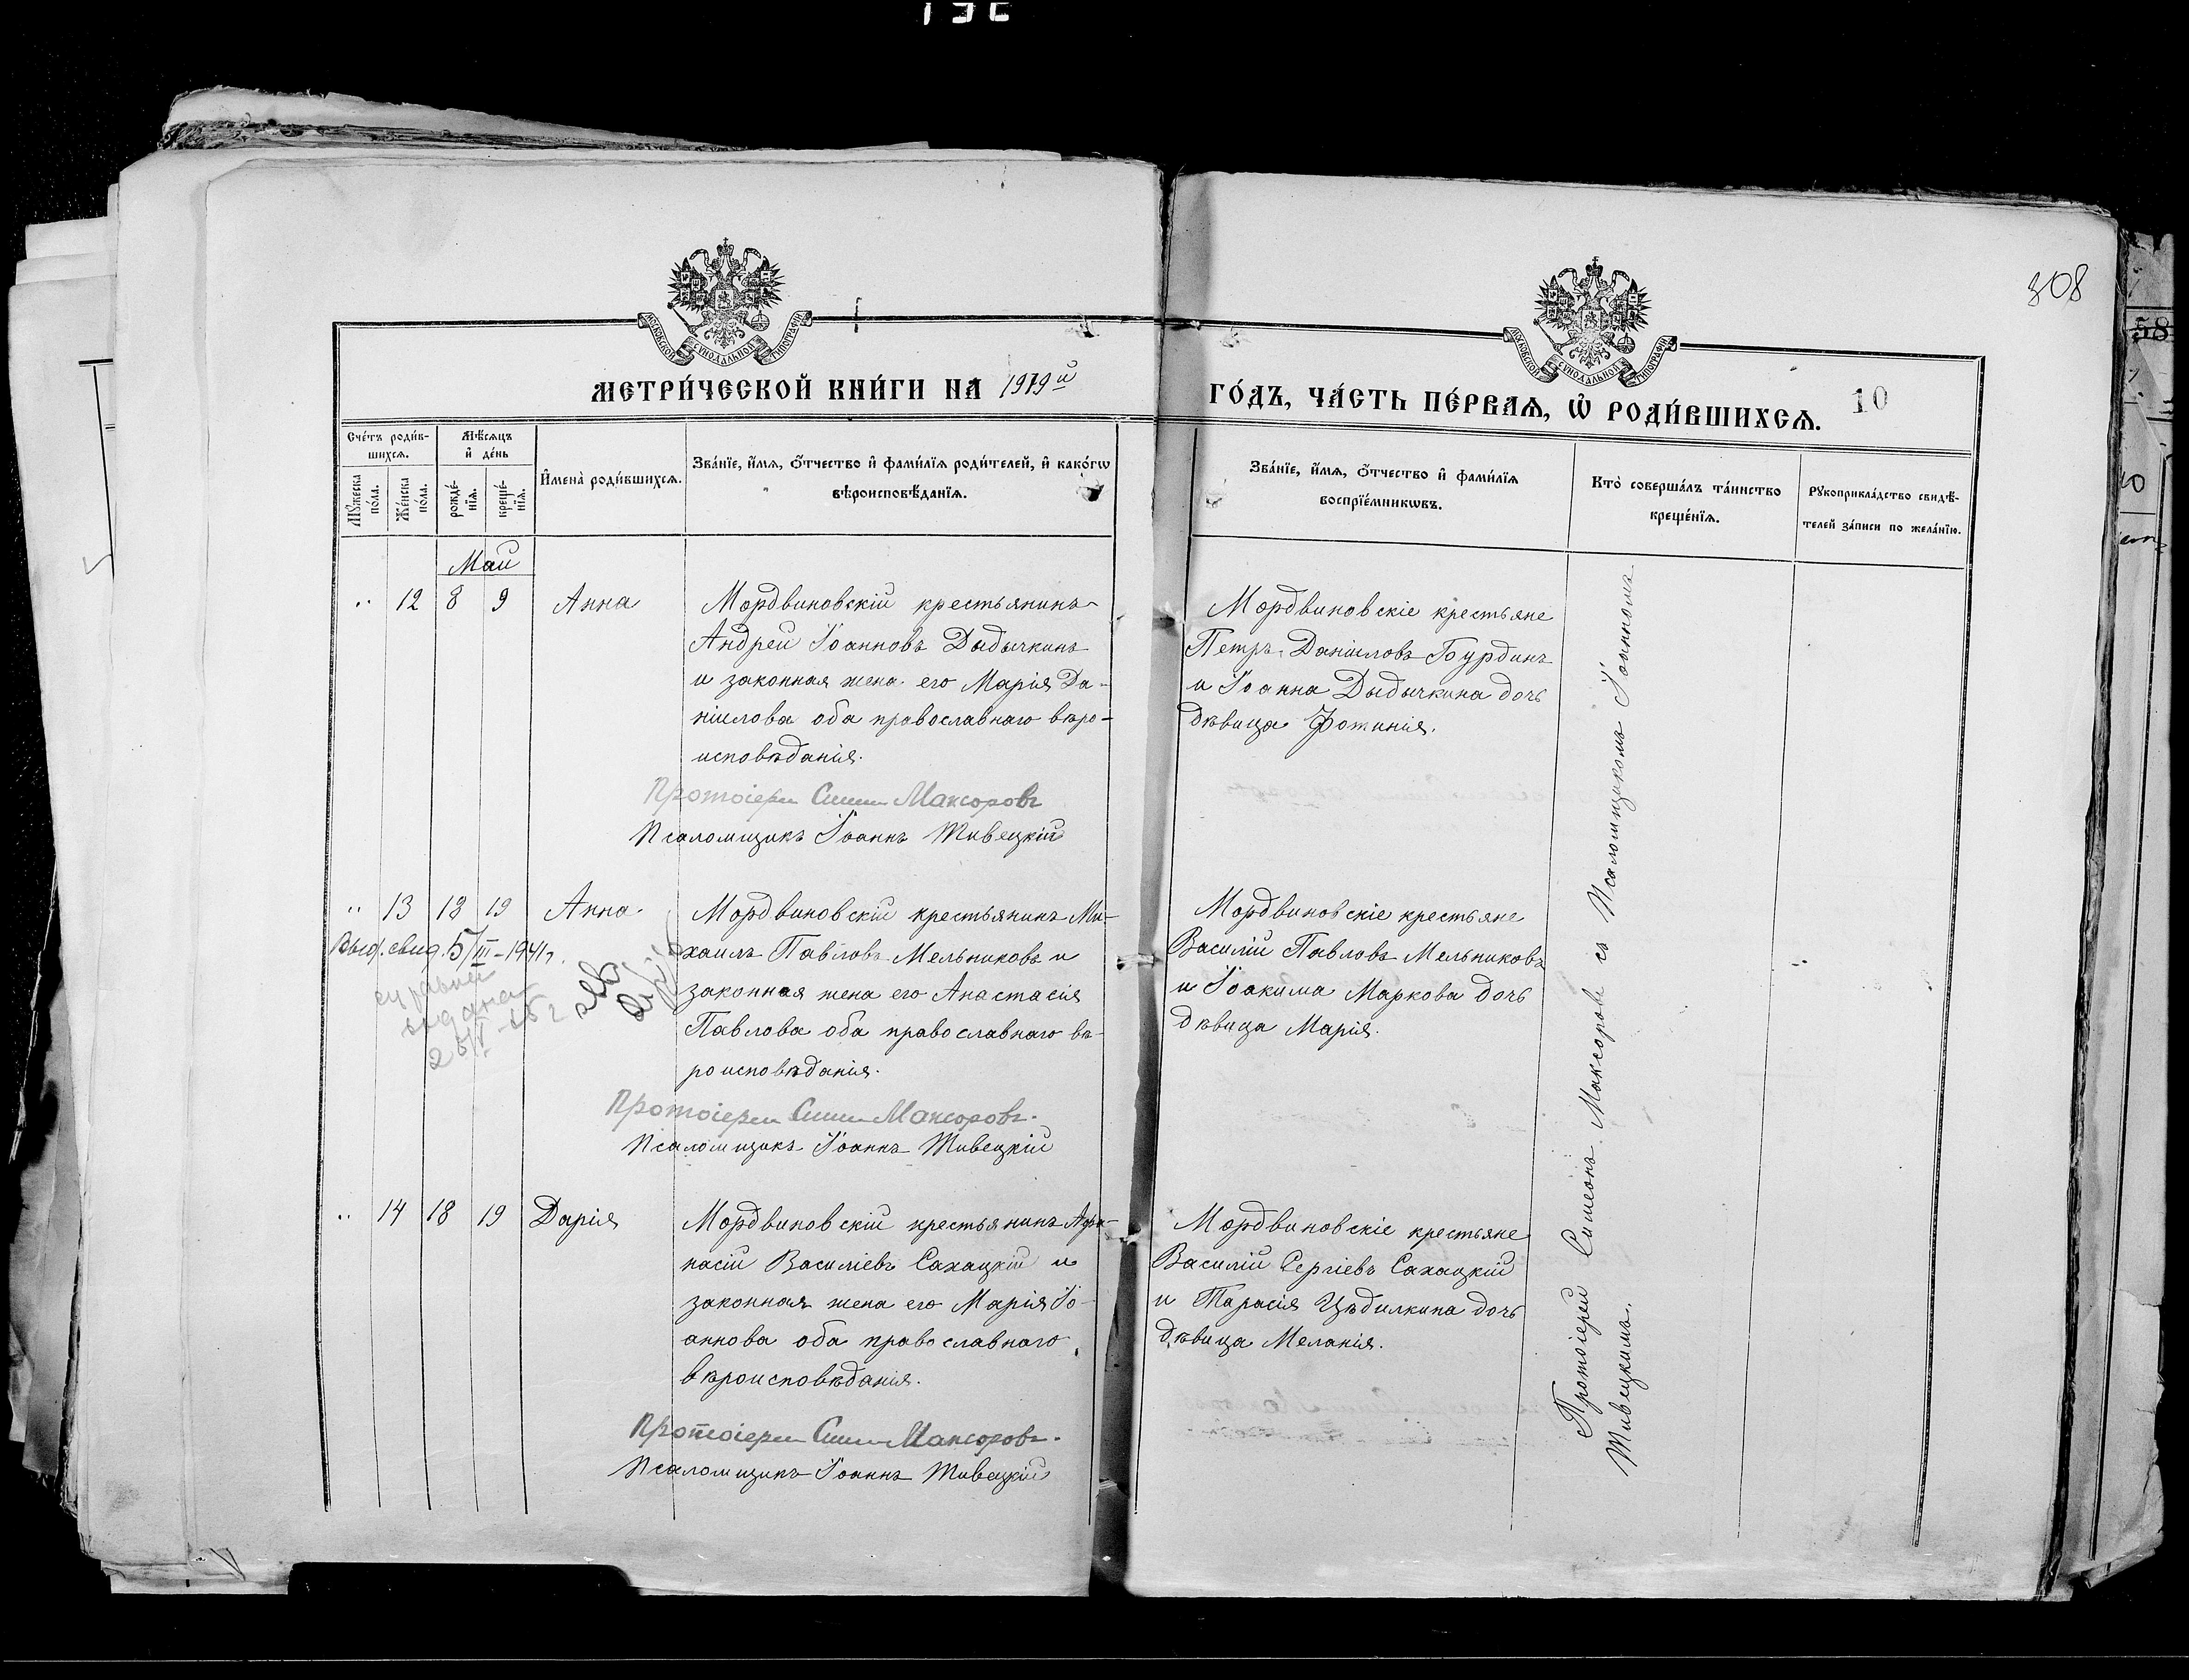 308
МОСКОВСКОЙ СѴНОДАЛЬНОЙ ТИПОГРАФІИ
МОСКОВСКОЙ СѴНОДАЛЬНОЙ ТИПОГРАФІИ
МЕТРИ́ЧЕСКОЙ КНИ́ГИ НА 1919й
ГО́ДЪ, ЧА́СТЬ ПЕ́РВАѦ, Ѡ҆ РОДИ́ВШИХСѦ. 10
Сче́тъ роди́в-
шихсѧ.
Мꙋ́жеска
по́ла.
Же́нска
по́ла.
Мѣ́сѧцъ
и҆ де́нь
рожде́-
нїѧ.
креще́-
нїѧ.
И҆мена̀ роди́вшихсѧ.
Зва́нїе, и҆́мѧ, ѻ҆́тчество и҆ фами́лїѧ роди́телей, и҆ како́гѡ
вѣроисповѣ́данїѧ.
Зва́нїе, и҆́мѧ, ѻ҆́тчество и҆ фами́лїѧ
воспрїе́мникѡвъ.
Кто̀ соверша́лъ та́инство
креще́нїѧ.
Рꙋкоприкла́дство свидѣ́-
телей за́писи по жела́нїю.
Май
" 12 8 9 Анна
Мордвиновскій крестьянинъ
Андрей Іоанновъ Дыдычкинъ
и законная жена его Марія Да-
ніилова оба православнаго вѣро-
исповѣданія.
Протоіерей Симеон Максоровъ
Псаломщикъ Іоаннъ Тивецкій
Мордвиновскіе крестьяне
Петръ Даніиловъ Бурдинъ
и Іоанна Дыдычкина дочь
дѣвица Фотинія.
" 13 18 19 Анна.
Выд. свид. 5/III-1941г.
Мордвиновскій крестьянинъ Ми-
хаилъ Павловъ Мельниковъ и
законная жена его Анастасія
Павлова оба православнаго вѣ-
роисповѣданія.
Протоіерей Симеон Максоровъ.
Псаломщикъ Іоаннъ Тивецкій
Мордвиновскіе крестьяне
Василій Павловъ Мельниковъ
и Іоакима Маркова дочь
дѣвица Марія.
" 14 18 19 Дарія
Мордвиновскій крестьянинъ Афа-
насій Василіевъ Сахацкій и
законная жена его Марія Іо-
аннова оба православнаго
вѣроисповѣданія.
Протоіерей Симеон Максоровъ.
Псаломщикъ Іоаннъ Тивецкій
Мордвиновскіе крестьяне
Василій Сергіевъ Сахацкій
и Тарасія Цѣдилкина дочь
дѣвица Меланія.
Протоіерей Симеонъ Максоровъ съ Псаломщикомъ Іоанномъ
Тивецкимъ.